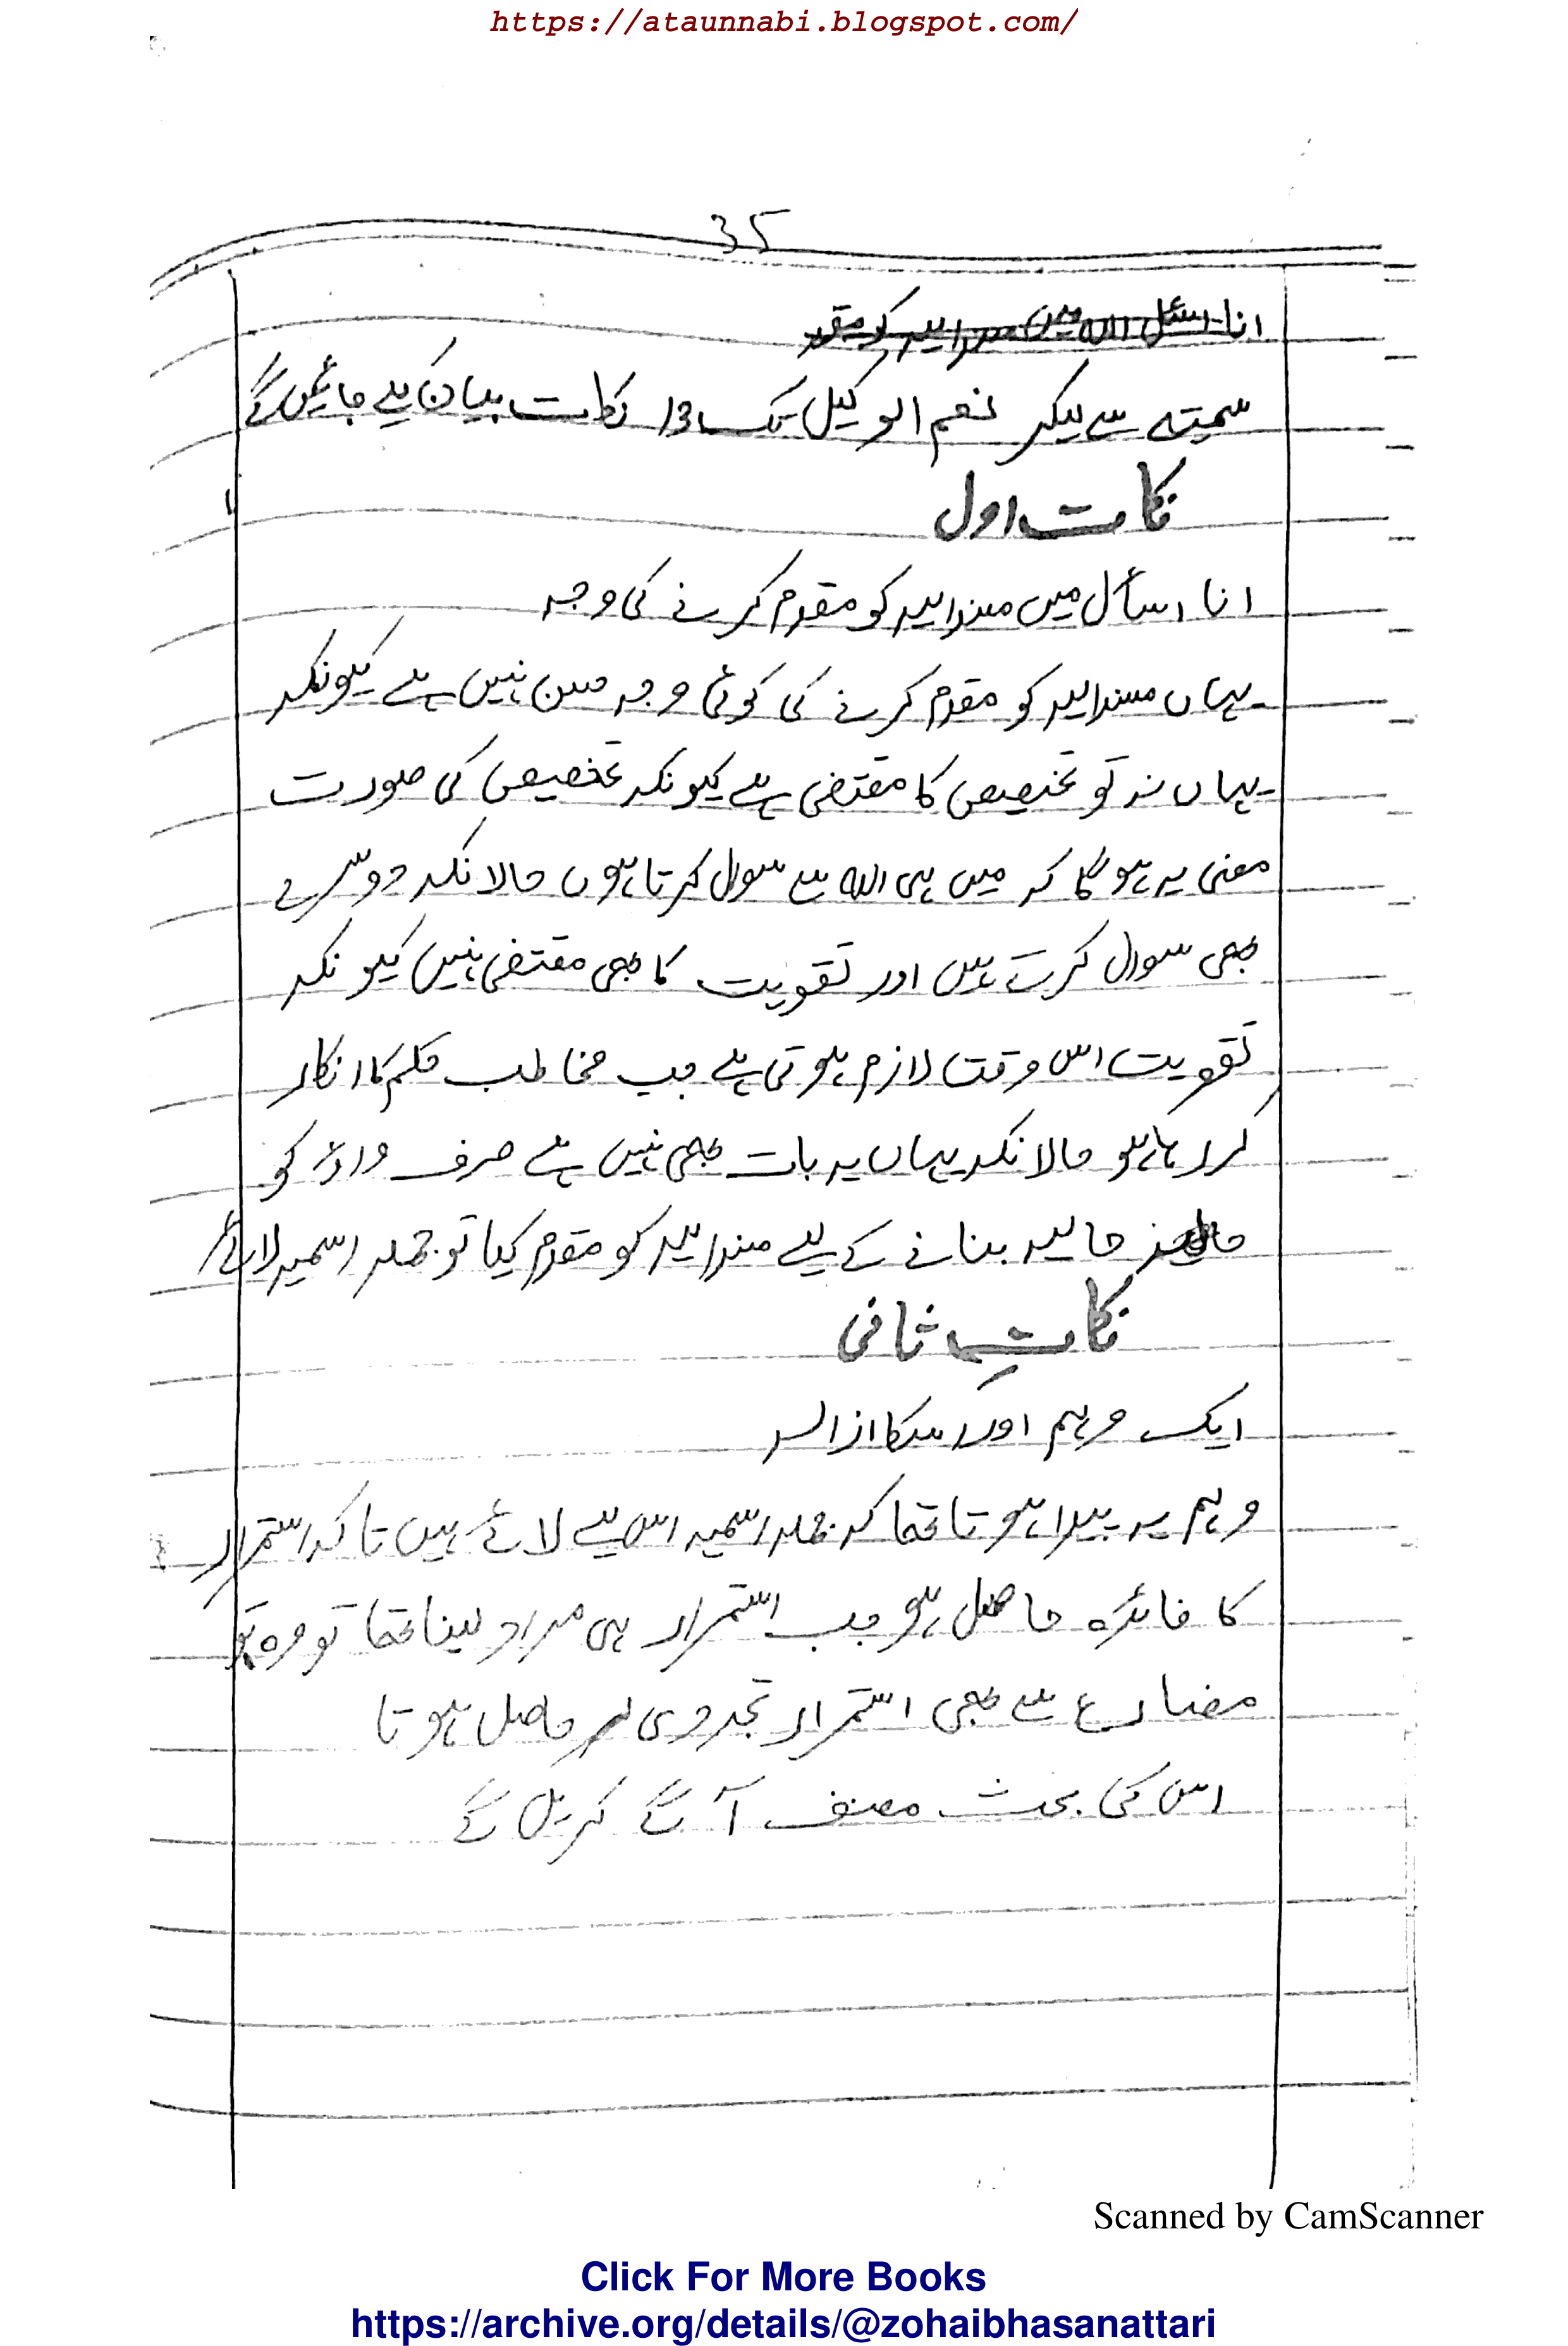 https://ataunnabi.blogspot.com/
35
انا اسئل اللہ میں مسندالیہ کو مقدم
سمیتہ سے لیکر نعم الوکیل تک 13 نکات بیان کیے جائیں گے
نکات اول
انا اسأل میں مسندالیہ کو مقدم کرنے کی وجہ
یہاں مسندالیہ کو مقدم کرنے کی کوئی وجہ حسن نہیں ہے کیونکہ
یہاں نہ تو تخصیص کا مقتضی ہے کیونکہ تخصیص کی صورت
معنی یہ ہوگا کہ میں ہی اللہ سے سوال کرتا ہوں حالانکہ دوسرے
بھی سوال کرتے ہیں اور تقویت کا بھی مقتضی نہیں کیونکہ
تقویت اس وقت لازم ہوتی ہے جب مخاطب حکم کا انکار
کررہا ہو حالانکہ یہاں یہ بات بھی نہیں ہے صرف واؤ کو
حالیہ بنانے کے لیے مسندالیہ کو مقدم کیا تو جملہ اسمیہ لائے
نکاتِ ثانی
ایک وہم اور اسکا ازالہ
وہم یہ پیدا ہوتا تھا کہ جملہ اسمیہ اس لیے لائے ہیں تاکہ استمرار
کا فائدہ حاصل ہو جب استمرار ہی مراد لینا تھا تو وہ تو
مضارع سے بھی استمرار تجددی حاصل ہوتا
اس کی بحث مصنف آگے کریں گے
Scanned by CamScanner
Click For More Books
https://archive.org/details/@zohaibhasanattari